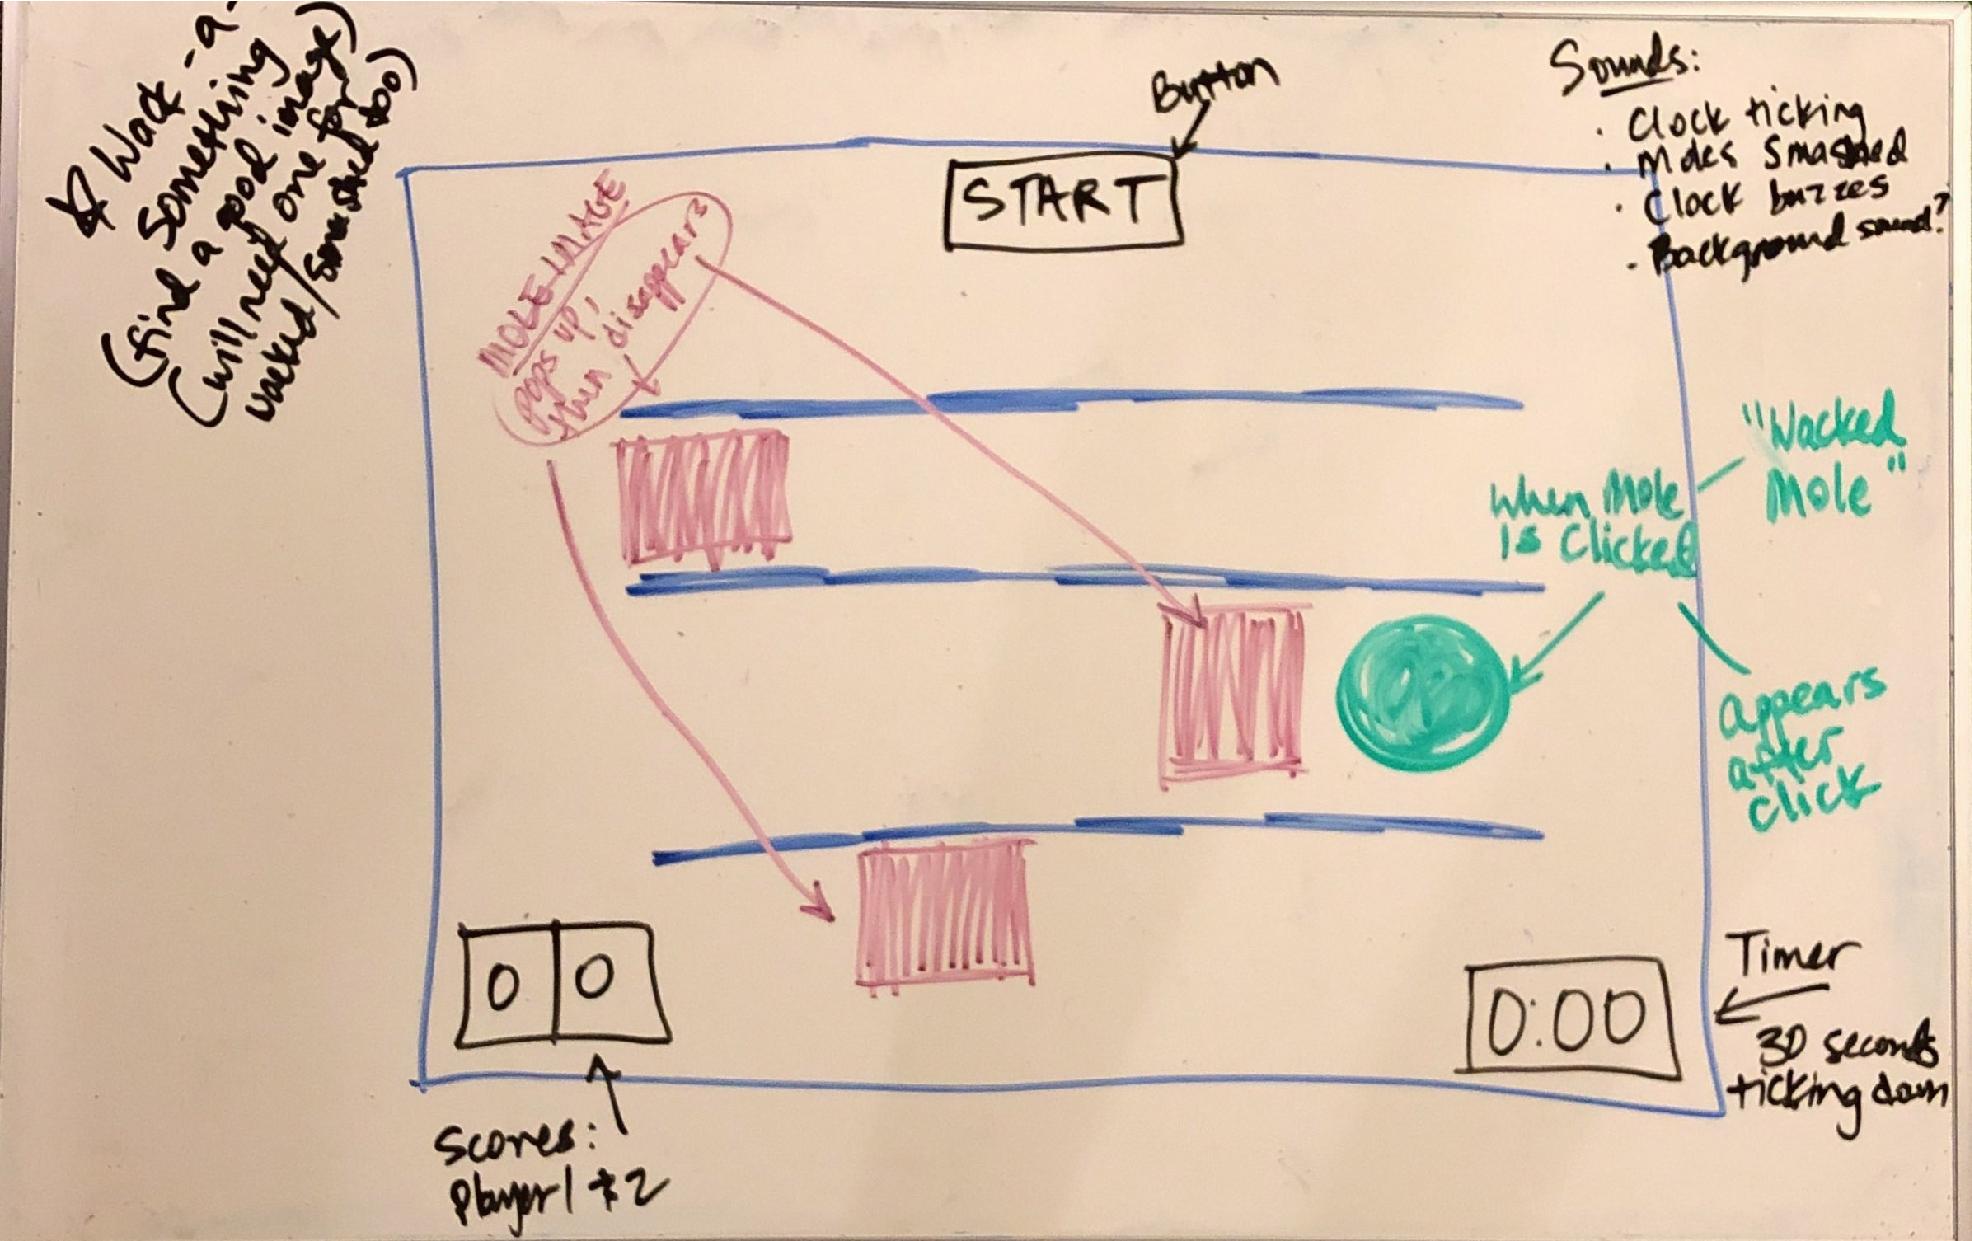 ☆ Wack-a-
Something
(find a good image)
(will need one for
wacked/smashed too)
Button
START
Sounds:
· Clock ticking
· Moles Smashed
· Clock buzzes
· Background sound?
MOLE IMAGE
pops up,
then disappears
"Wacked
Mole"
When Mole
is Clicked
appears
after
click
0 0
Scores:
Player 1 + 2
0:00
Timer
30 seconds
ticking down